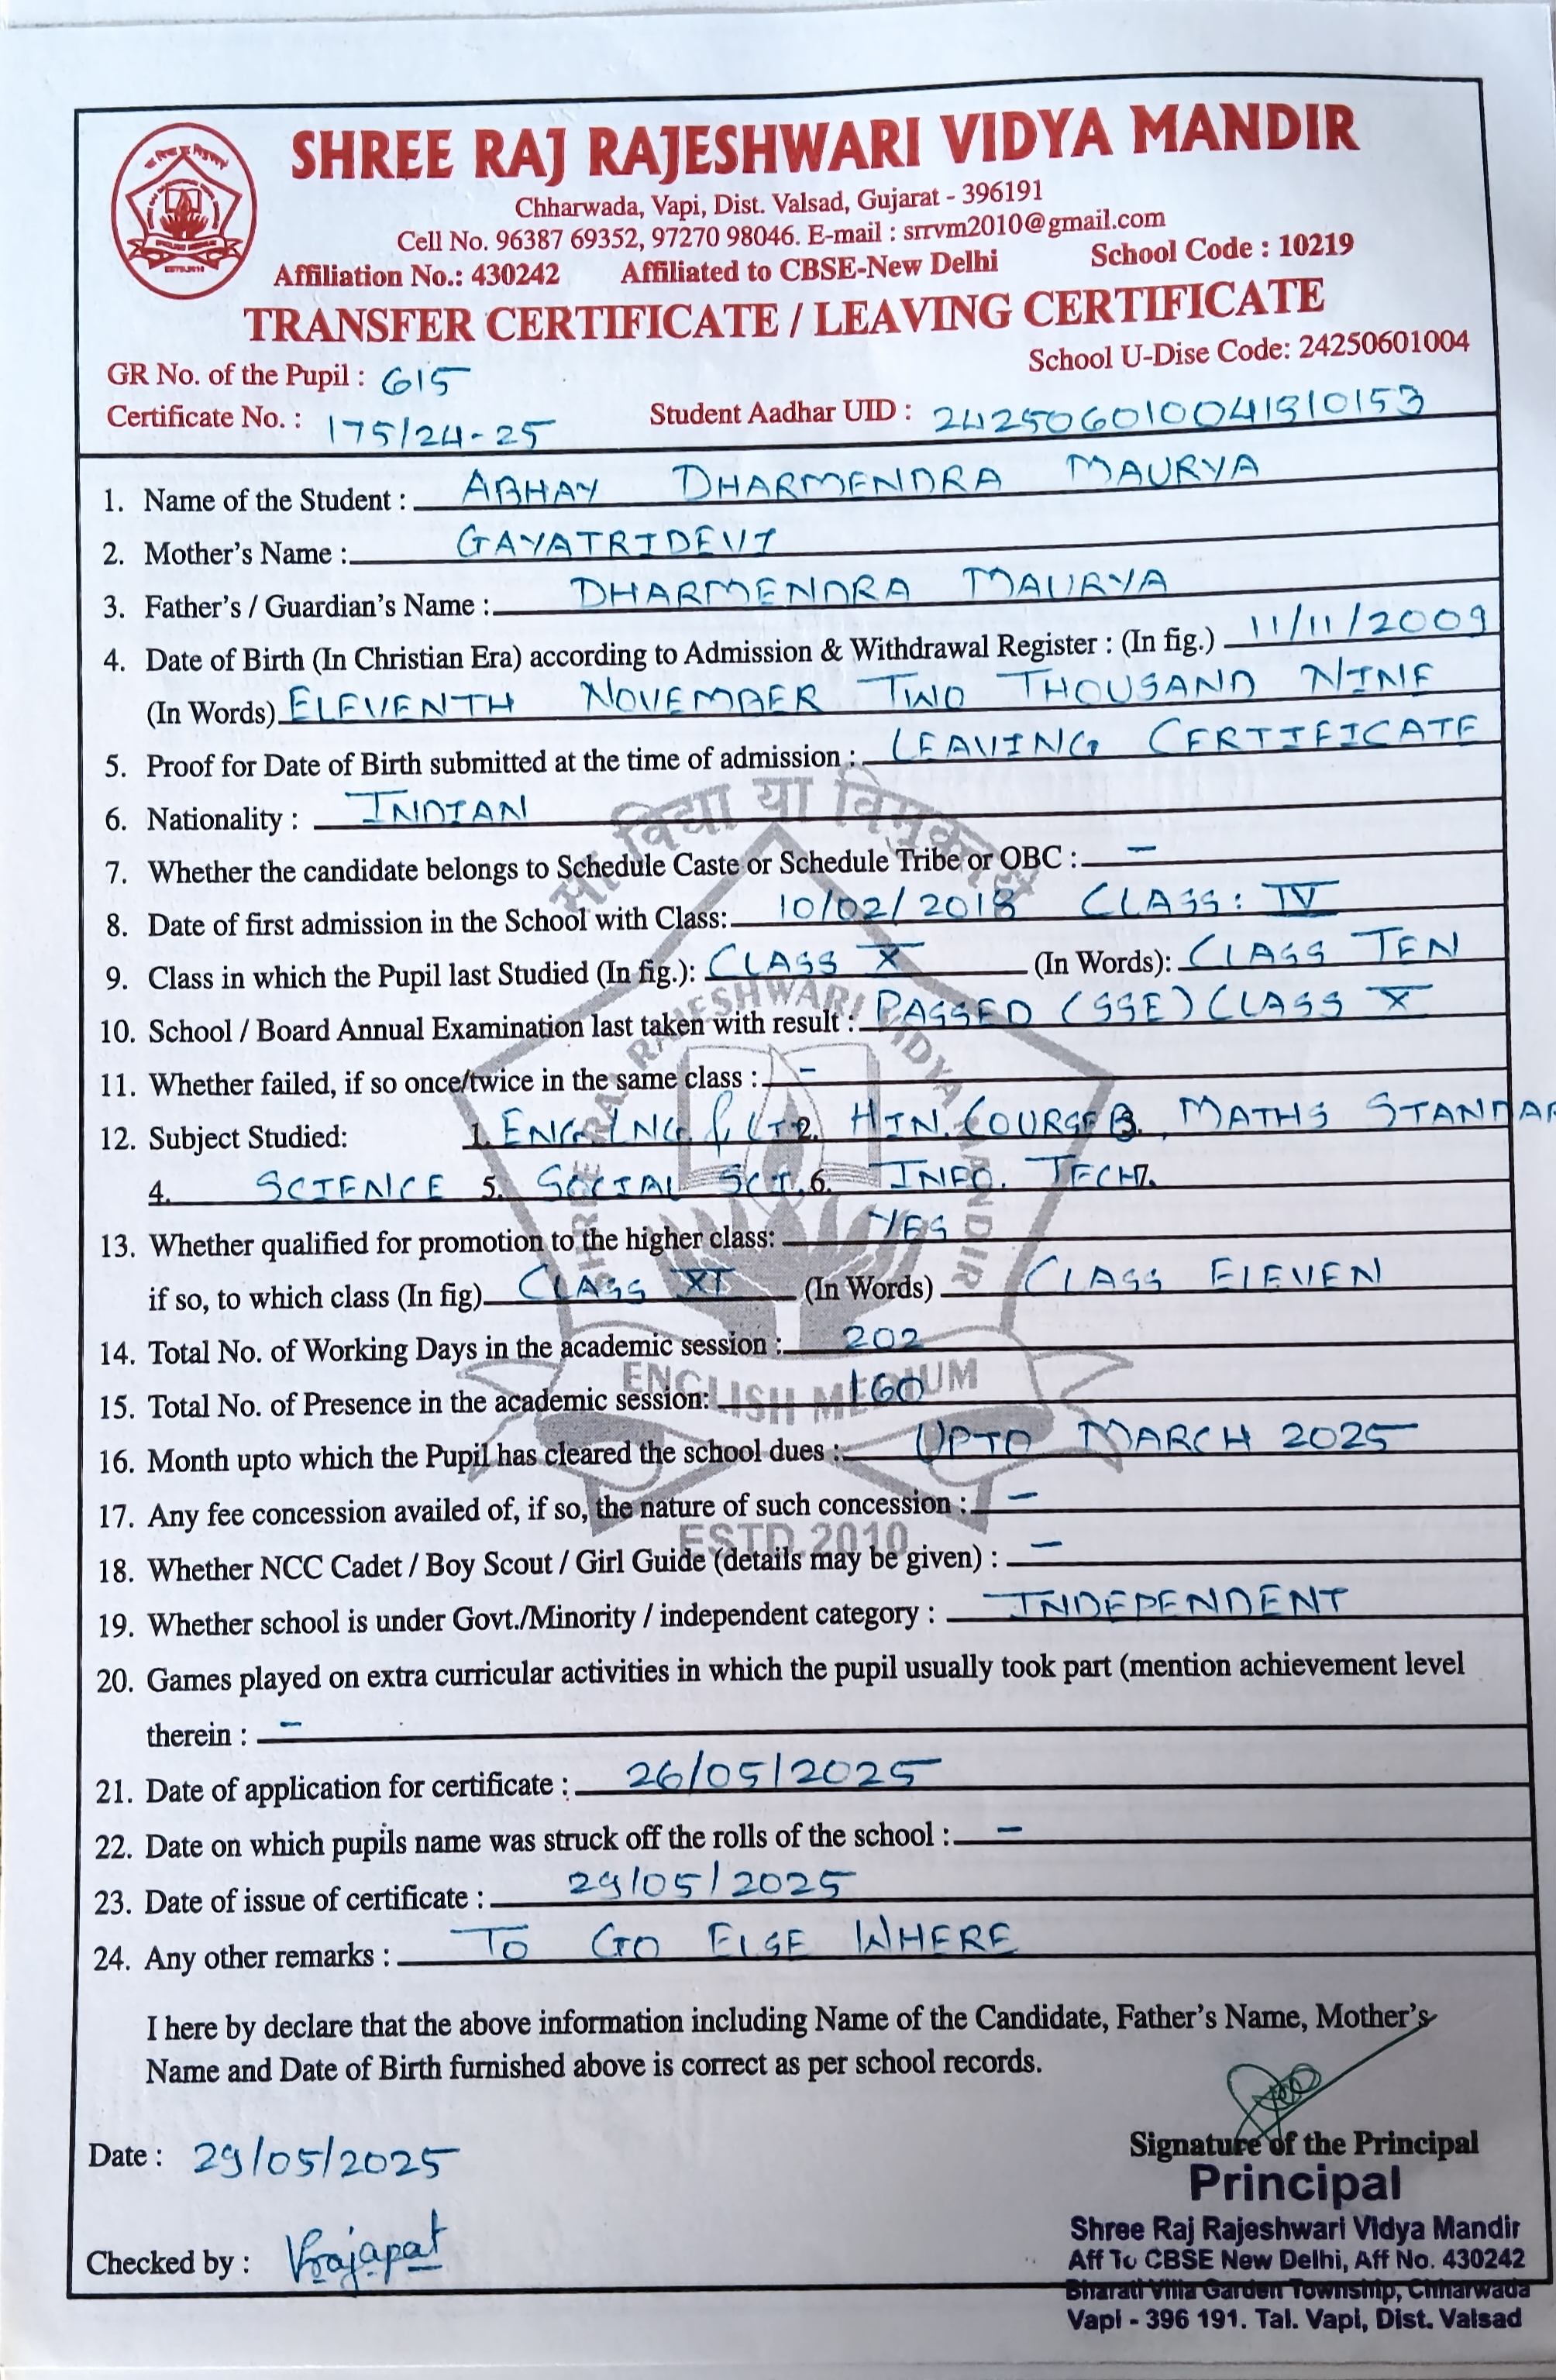 SHREE RAJ RAJESHWARI VIDYA MANDIR
Chharwada, Vapi, Dist. Valsad, Gujarat - 396191
Cell No. 96387 69352, 97270 98046. E-mail : srrvm2010@gmail.com
Affiliation No.: 430242 Affiliated to CBSE-New Delhi School Code : 10219
TRANSFER CERTIFICATE / LEAVING CERTIFICATE
School U-Dise Code: 24250601004
GR No. of the Pupil : 615
Certificate No. : 175/24-25 Student Aadhar UID : 242506010041910153
1. Name of the Student : ABHAY DHARMENDRA MAURYA
2. Mother's Name : GAYATRIDEVI
3. Father's / Guardian's Name : DHARMENDRA MAURYA
4. Date of Birth (In Christian Era) according to Admission & Withdrawal Register : (In fig.) 11/11/2009
(In Words) ELEVENTH NOVEMBER TWO THOUSAND NINE
5. Proof for Date of Birth submitted at the time of admission : LEAVING CERTIFICATE
6. Nationality : INDIAN
सा विद्या या विमुक्तये
7. Whether the candidate belongs to Schedule Caste or Schedule Tribe or OBC : -
8. Date of first admission in the School with Class: 10/02/2018 CLASS: IV
9. Class in which the Pupil last Studied (In fig.): CLASS X (In Words): CLASS TEN
SHREE RAJ RAJESHWARI VIDYA MANDIR
10. School / Board Annual Examination last taken with result : PASSED (SSE) CLASS X
11. Whether failed, if so once/twice in the same class : -
12. Subject Studied: 1. ENG LNG & LIT 2. HIN. COURSE B 3. MATHS STANDAR
4. SCIENCE 5. SOCIAL SCI. 6. INFO. TECH 7.
13. Whether qualified for promotion to the higher class: YES
if so, to which class (In fig) CLASS XI (In Words) CLASS ELEVEN
14. Total No. of Working Days in the academic session : 202
ENGLISH MEDIUM
15. Total No. of Presence in the academic session: 160
16. Month upto which the Pupil has cleared the school dues : UPTO MARCH 2025
17. Any fee concession availed of, if so, the nature of such concession : -
ESTD. 2010
18. Whether NCC Cadet / Boy Scout / Girl Guide (details may be given) : -
19. Whether school is under Govt./Minority / independent category : INDEPENDENT
20. Games played on extra curricular activities in which the pupil usually took part (mention achievement level
therein : -
21. Date of application for certificate : 26/05/2025
22. Date on which pupils name was struck off the rolls of the school : -
23. Date of issue of certificate : 29/05/2025
24. Any other remarks : TO GO ELSE WHERE
I here by declare that the above information including Name of the Candidate, Father's Name, Mother's
Name and Date of Birth furnished above is correct as per school records.
Date : 29/05/2025
Signature of the Principal
Principal
Shree Raj Rajeshwari Vidya Mandir
Checked by : Prajapat
Aff To CBSE New Delhi, Aff No. 430242
Bharati Villa Garden Township, Chharwada
Vapi - 396 191. Tal. Vapi, Dist. Valsad